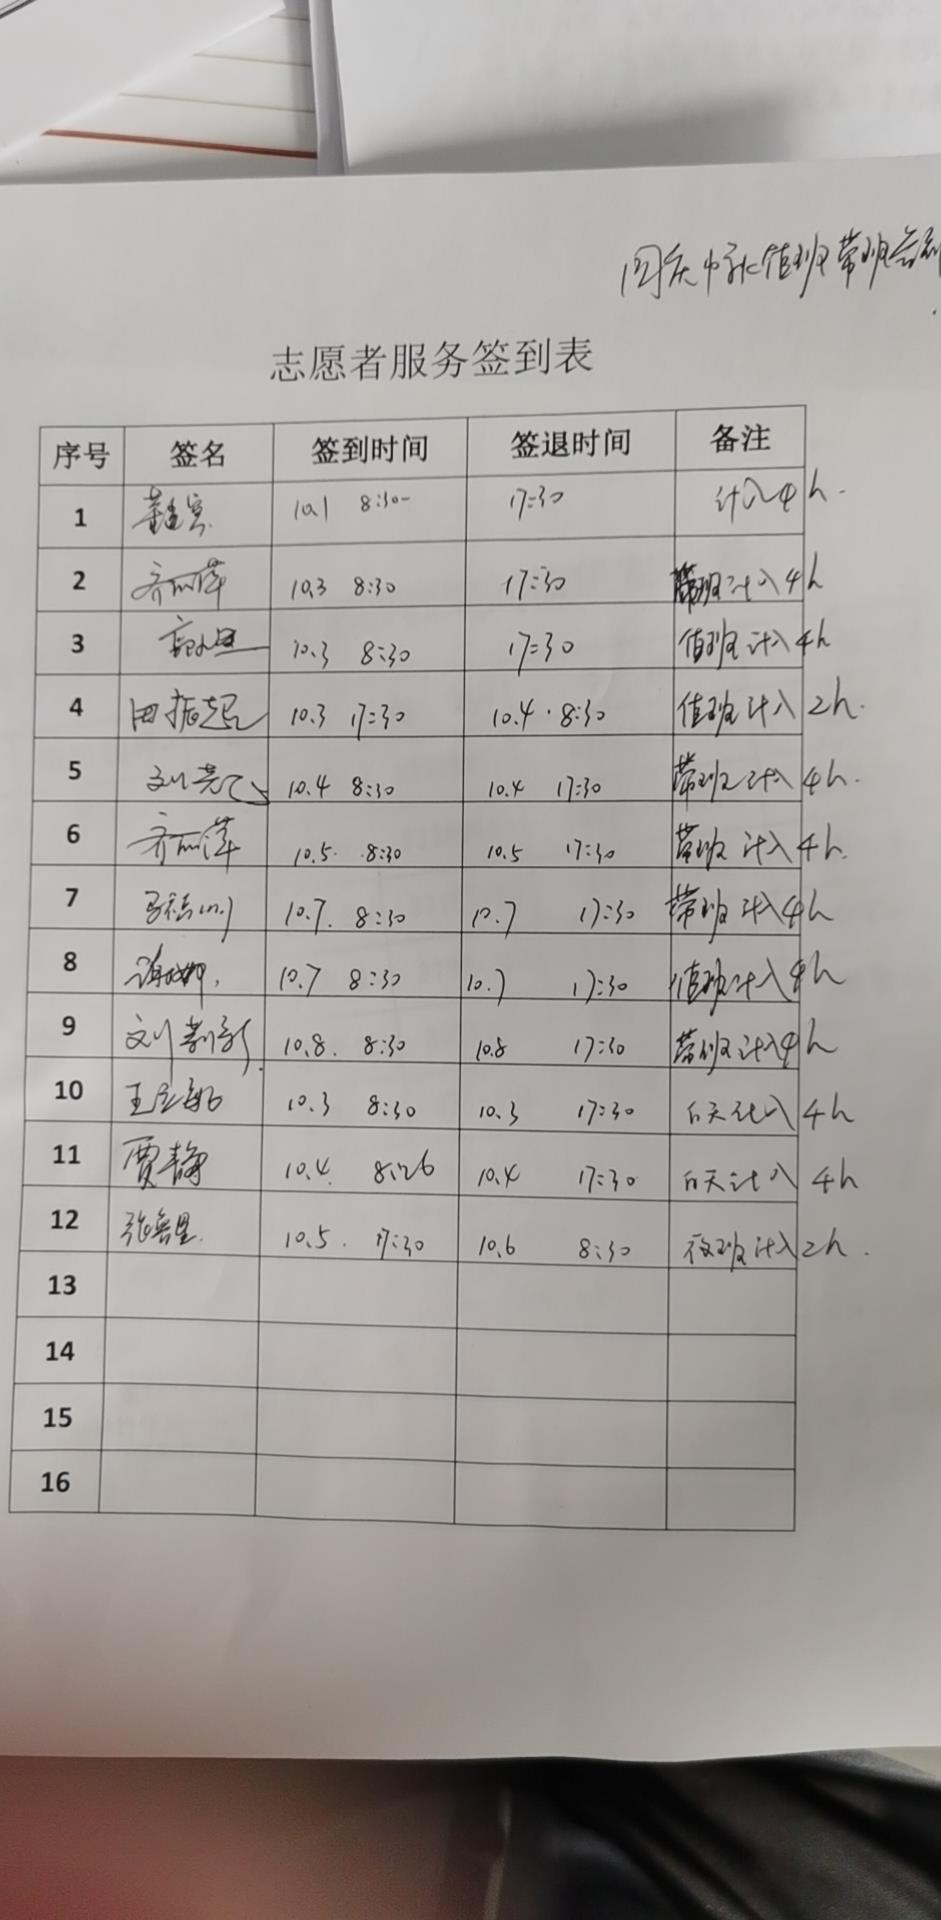 国庆中秋值班带班签到
志愿者服务签到表
序号 签名 签到时间 签退时间 备注
1 10.1 8:30- 17:30 计入4h.
2 齐丽萍 10.3 8:30 17:30 带班计入4h
3 10.3 8:30 17:30 值班计入4h
4 田振起 10.3 17:30 10.4 . 8:30 值班计入2h.
5 10.4 8:30 10.4 17:30 带班计入4h.
6 齐丽萍 10.5. 8:30 10.5 17:30 带班计入4h.
7 10.7. 8:30 10.7 17:30 带班计入4h
8 10.7 8:30 10.7 17:30 值班计入4h
9 10.8. 8:30 10.8 17:30 带班计入4h
10 10.3 8:30 10.3 17:30 白天计入4h
11 贾静 10.4. 8:26 10.4 17:30 白天计入4h
12 10.5. 17:30 10.6 8:30 夜班计入2h.
13
14
15
16